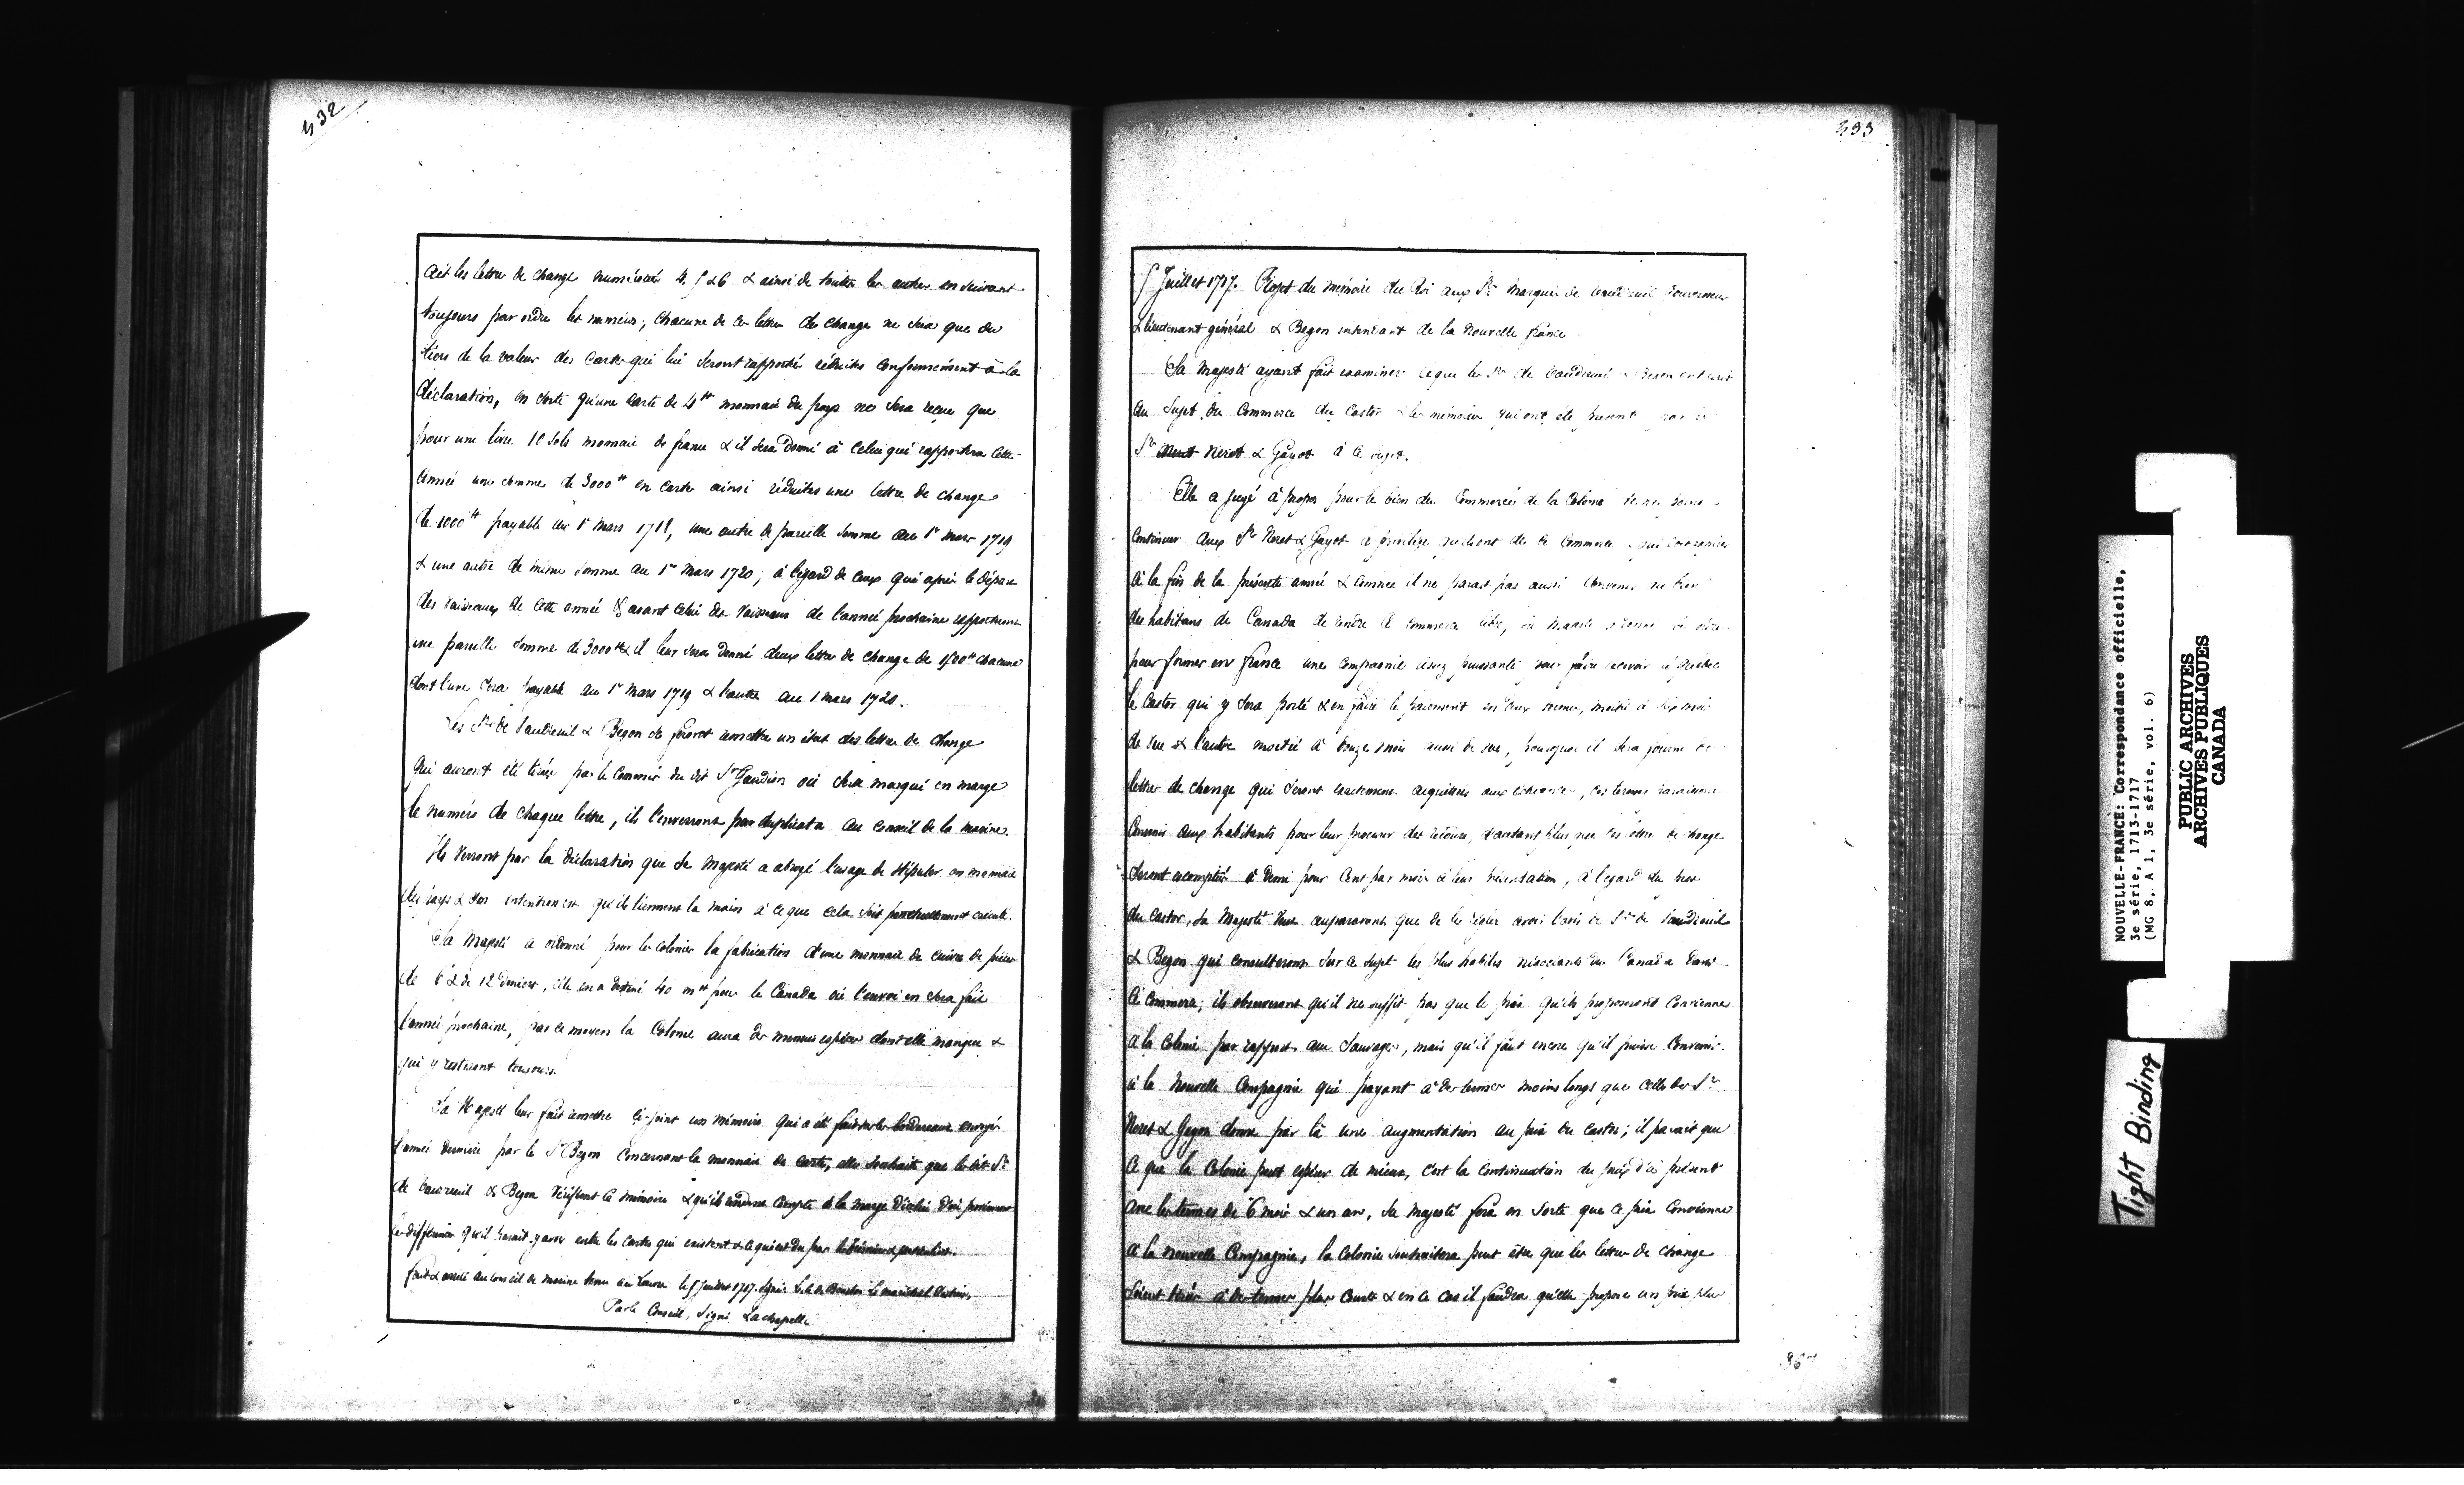 532
ait les lettres de change numérotées 4, 5 & 6 & ainsi de toutes les autres en suivant
toujours par ordre les numéros, chacune de ces lettres de change ne sera que du
tiers de la valeur des cartes qui lui seront rapportées réduites conformément à la
déclaration, en sorte qu'une carte de 4tt monnaie du pays ne sera reçue que
pour une livre 10 sols monnaie de france & il sera donné à celui qui rapportera cette
année une somme de 3000tt en carte ainsi réduites une lettre de change
de 1000tt payable au 1r mars 1718, une autre de pareille somme au 1r mars 1719
& une autre de même somme au 1r mars 1720; à l'égard de ceux qui après le départ
des vaisseaux de cette année & avant celui des vaisseaux de l'année prochaine rapporteront
une pareille somme de 3000tt il leur sera donné deux lettres de change de 1500tt chacune
dont l'une sera payable au 1r mars 1719 & l'autre au 1 mars 1720.
Les Srs de Vaudreuil & Begon se feront remettre un état des lettres de change
qui auront été tirées par le commis du dit Sr Gaudion où sera marqué en marge
le numéro de chaque lettre, ils l'enverront par duplicata au conseil de la marine.
Ils verront par la déclaration que Sa Majesté a abrogé l'usage de stipuler en monnaie
du pays & son intention est qu'ils tiennent la main à ce que cela soit ponctuellement exécuté.
Sa Majesté a ordonné pour les colonies la fabrication d'une monnaie de cuivre de pièces
de 6 & de 12 deniers, elle en a destiné 40 mtt pour le Canada où l'envoi en sera fait
l'année prochaine, par ce moyen la Colonie aura des menues espèces dont elle manque &
qui y resteront toujours.
Sa Majesté leur fait remettre ci-joint un mémoire qui a été fait sur les bordereaux envoyés
l'année dernière par le Sr Begon concernant la monnaie de carte, elle souhaite que les dits Srs
de Vaudreuil & Begon vérifient ce mémoire & qu'ils rendent compte à la marge d'icelui d'où proviennent
les différences qu'il parait y avoir entre les cartes qui existent & ce qui est du par
fait & arrêté au conseil de marine tenu au Louvre le 5 juillet 1717. Signé L. A. de Bourbon Le maréchal Destrées,
Par le Conseil, Signé Lachapelle
533
5 Juillet 1717. Projet du mémoire du Roi aux Srs Marquis de Vaudreuil Gouverneur
& lieutenant général & Begon intendant de la Nouvelle france.
Sa Majesté ayant fait examiner ce que les Srs de Vaudreuil & Begon ont écrit
au sujet du Commerce du Castor & les mémoires qui ont été présentés par les
Srs Neret & Gayot à ce sujet.
Elle a jugé à propos pour le bien du Commerce de la Colonie de ne point
continuer aux Srs Neret & Gayot le privilège qu'ils ont de ce Commerce qui doit expirer
à la fin de la présente année & comme il ne parait pas aussi convenir au bien
des habitans de Canada de rendre ce commerce libre, sa Majesté a donné ses ordres
pour former en France une compagnie assez puissante pour faire recevoir à Québec
le Castor qui y sera porté & en faire le paiement en deux termes, moitié à six mois
de vue & l'autre moitié à douze mois aussi de vue, pourquoi il sera fourni des
lettres de change qui seront exactement acquittées aux échéances, ces termes paraissent
convenir aux habitants pour leur procurer des retours, d'autant plus que ces lettres de change
seront escomptées à demi pour Cent par mois à leur présentation, à l'égard du prix
du Castor, Sa Majesté veut auparavant que de le régler avoir l'avis des Srs de Vaudreuil
& Begon qui consulteront sur ce sujet les plus habiles négociants du Canada dans
ce commerce; ils observeront qu'il ne suffit pas que le prix qu'ils proposeront convienne
à la Colonie par rapport aux Sauvages, mais qu'il faut encore qu'il puisse convenir
à la Nouvelle Compagnie qui payant à des termes moins longs que celles des Srs
Neret & Gayon donne par là une augmentation au prix du castor; il parait que
ce que la Colonie peut espérer de mieux, c'est la continuation du prix d'à présent
avec les termes de 6 mois & un an, Sa Majesté fera en sorte que ce prix convienne
à la nouvelle Compagnie, la Colonie souhaitera peut être que les lettres de change
soient tirées à des termes plus courts & en ce cas il faudra qu'elle propose un prix plus
96
NOUVELLE-FRANCE: Correspondance officielle,
3e série, 1713-1717
(MG 8, A 1, 3e série, vol. 6)
PUBLIC ARCHIVES
ARCHIVES PUBLIQUES
CANADA
Tight Binding